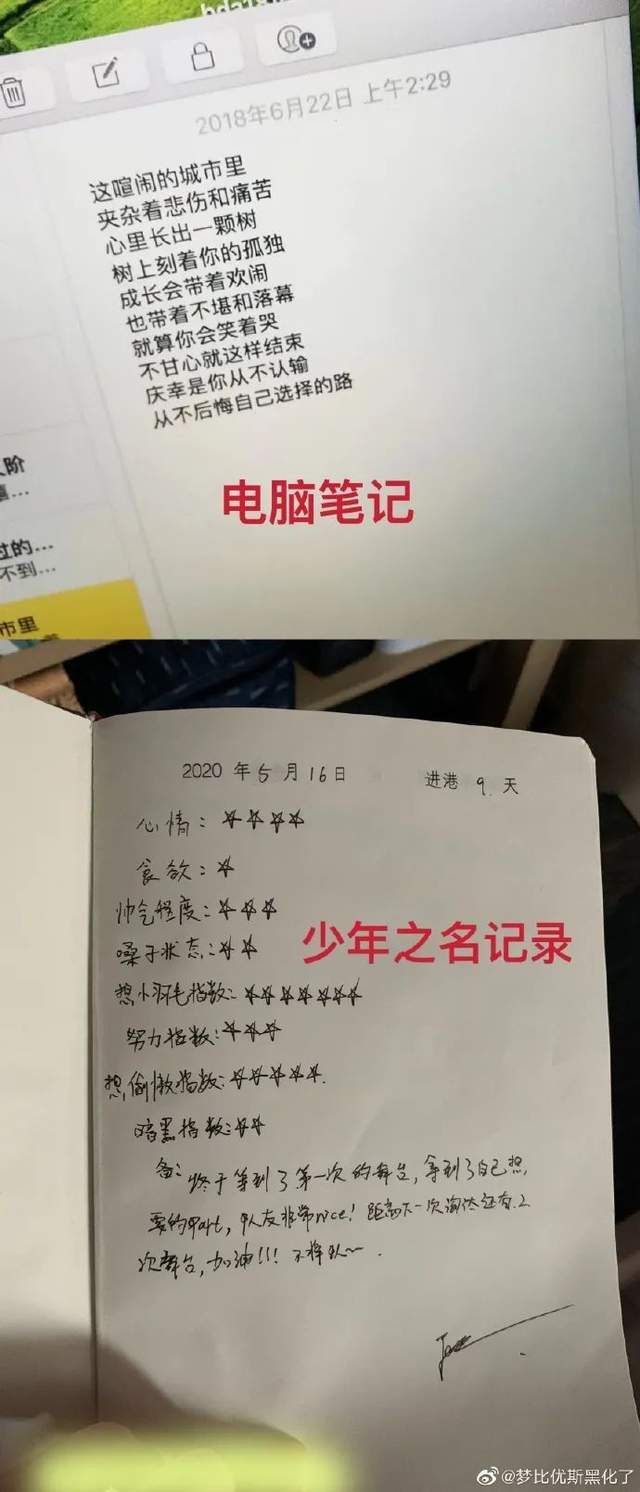 2018年6月22日 上午2:29
这喧闹的城市里
夹杂着悲伤和痛苦
心里长出一颗树
树上刻着你的孤独
成长会带着欢闹
也带着不堪和落幕
就算你会笑着哭
不甘心就这样结束
庆幸是你从不认输
从不后悔自己选择的路
阶
过的...
不到...
市里
电脑笔记
2020 年 5 月 16 日 进港 9. 天
心情：☆☆☆☆
食欲：☆
帅气程度：☆☆☆
嗓子状态：☆☆
少年之名记录
想小羽毛指数：☆☆☆☆☆☆☆
努力指数：☆☆☆
想偷懒指数：☆☆☆☆☆.
暗黑指数：☆☆
备：终于等到了第一次的舞台，等到了自己想
要的part，队友非常nice！距离下一次淘汰还有2
次舞台，加油！！！不掉队～.
@梦比优斯黑化了